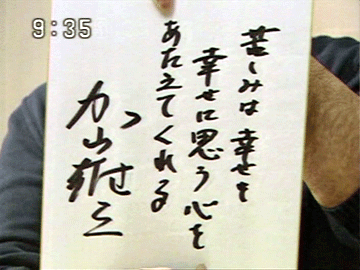 9:35
苦しみは幸せを
幸せに思う心を
あたえてくれる
加山雄三